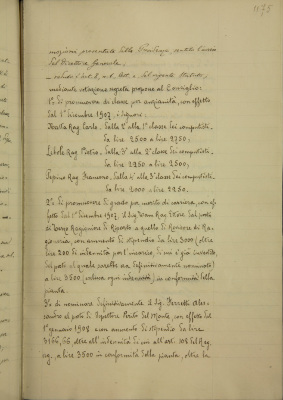 1175
mozioni presentate dalla Presidenza sentito l'avviso
del Direttore Generale,
mediante votazione segreta propone al Consiglio:
1° Di promuovere di classe per anzianità, con effetto
dal 1° Dicembre 1907, i Signori:
Rag. Carlo. dalla 2ª alla 1ª classe dei computisti.
da lire 2500 a lire 2750;
Rag. Pietro. dalla 3ª alla 2ª classe dei computisti.
da lire 2250 a lire 2500;
Rag. dalla 4ª alla 3ª classe dei computisti.
da lire 2000 a lire 2250.
2° Di promuovere di grado per merito di carriera, con ef-
fetto dal 1° Dicembre 1907, il Sig. Rag. Ettore dal posto
di Ragioniere di a quello di di Ra-
gioneria, con aumento di stipendio da lire 3000 (oltre
lire 200 di indennità per l'incarico, di cui è già investito
del posto al quale sarebbe ora definitivamente nominato)
a lire 3500 in conformità della
pianta.
3° di nominare definitivamente il Sig. Ferretti Ales-
sandro al posto di del Monte, con effetto dal
1° gennaio 1908 con aumento di stipendio da lire
3166,66, oltre all'indennità di cui all'art. 108 del Reg.
org. a lire 3500 in conformità della pianta, oltre la